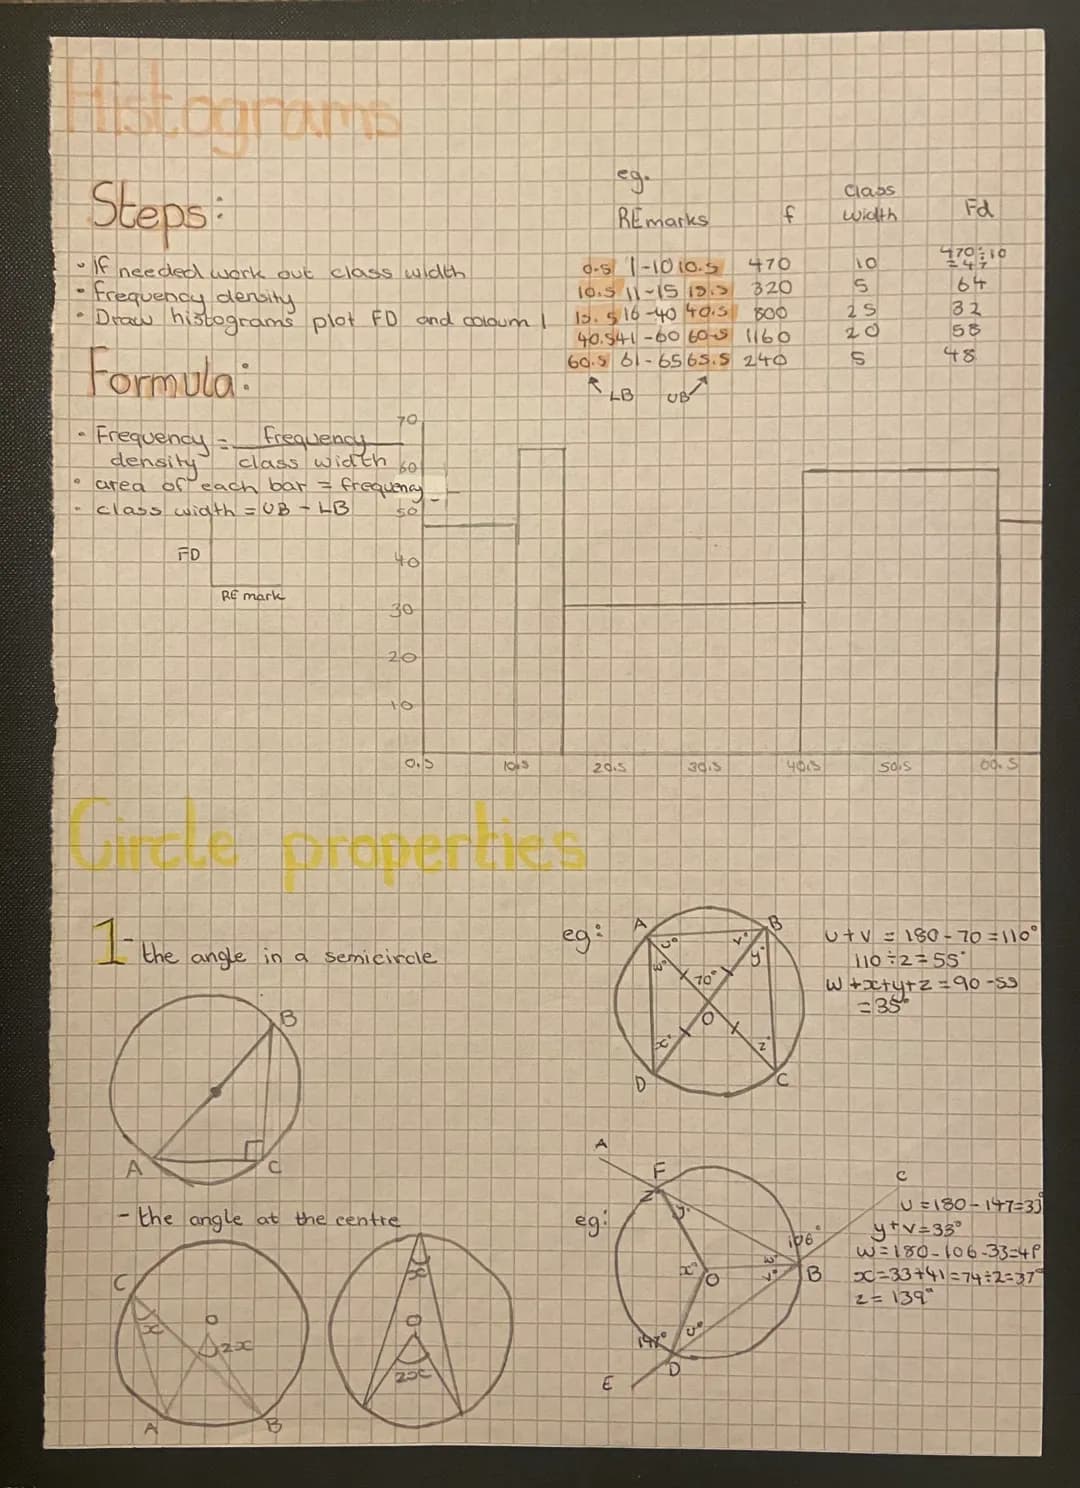 Histograms
Steps:
• If needed work out class width
• frequency density
• Draw histograms plot FD and coloum 1
eg.
REmarks f class width Fd
0.5 1-10 10.5 470 10 470÷10 = 47
10.5 11-15 15.5 320 5 64
15.5 16-40 40.5 800 25 32
40.5 41-60 60.5 1160 20 58
60.5 61-65 65.5 240 5 48
LB UB
Formula:
• Frequency density = frequency / class width
• area of each bar = frequency
• class width = UB - LB
FD
RE mark
70
60
50
40
30
20
10
0.5 10.5 20.5 30.5 40.5 50.5 60.5
Circle properties
1- the angle in a semicircle
B
A
C
eg:
A
B
u°
v°
w°
y°
70°
O
x°
z°
D
C
u+v = 180-70=110°
110÷2=55°
w+x+y+z=90-55
=35°
- the angle at the centre
C
x
O
2x
A
B
x
O
2x
eg:
A
F
z
y°
C
106°
x°
O
w°
v°
B
147°
u°
D
E
u=180-147=33
y+v=33°
w=180-106-33=41
x=33+41=74÷2=37°
z=139°